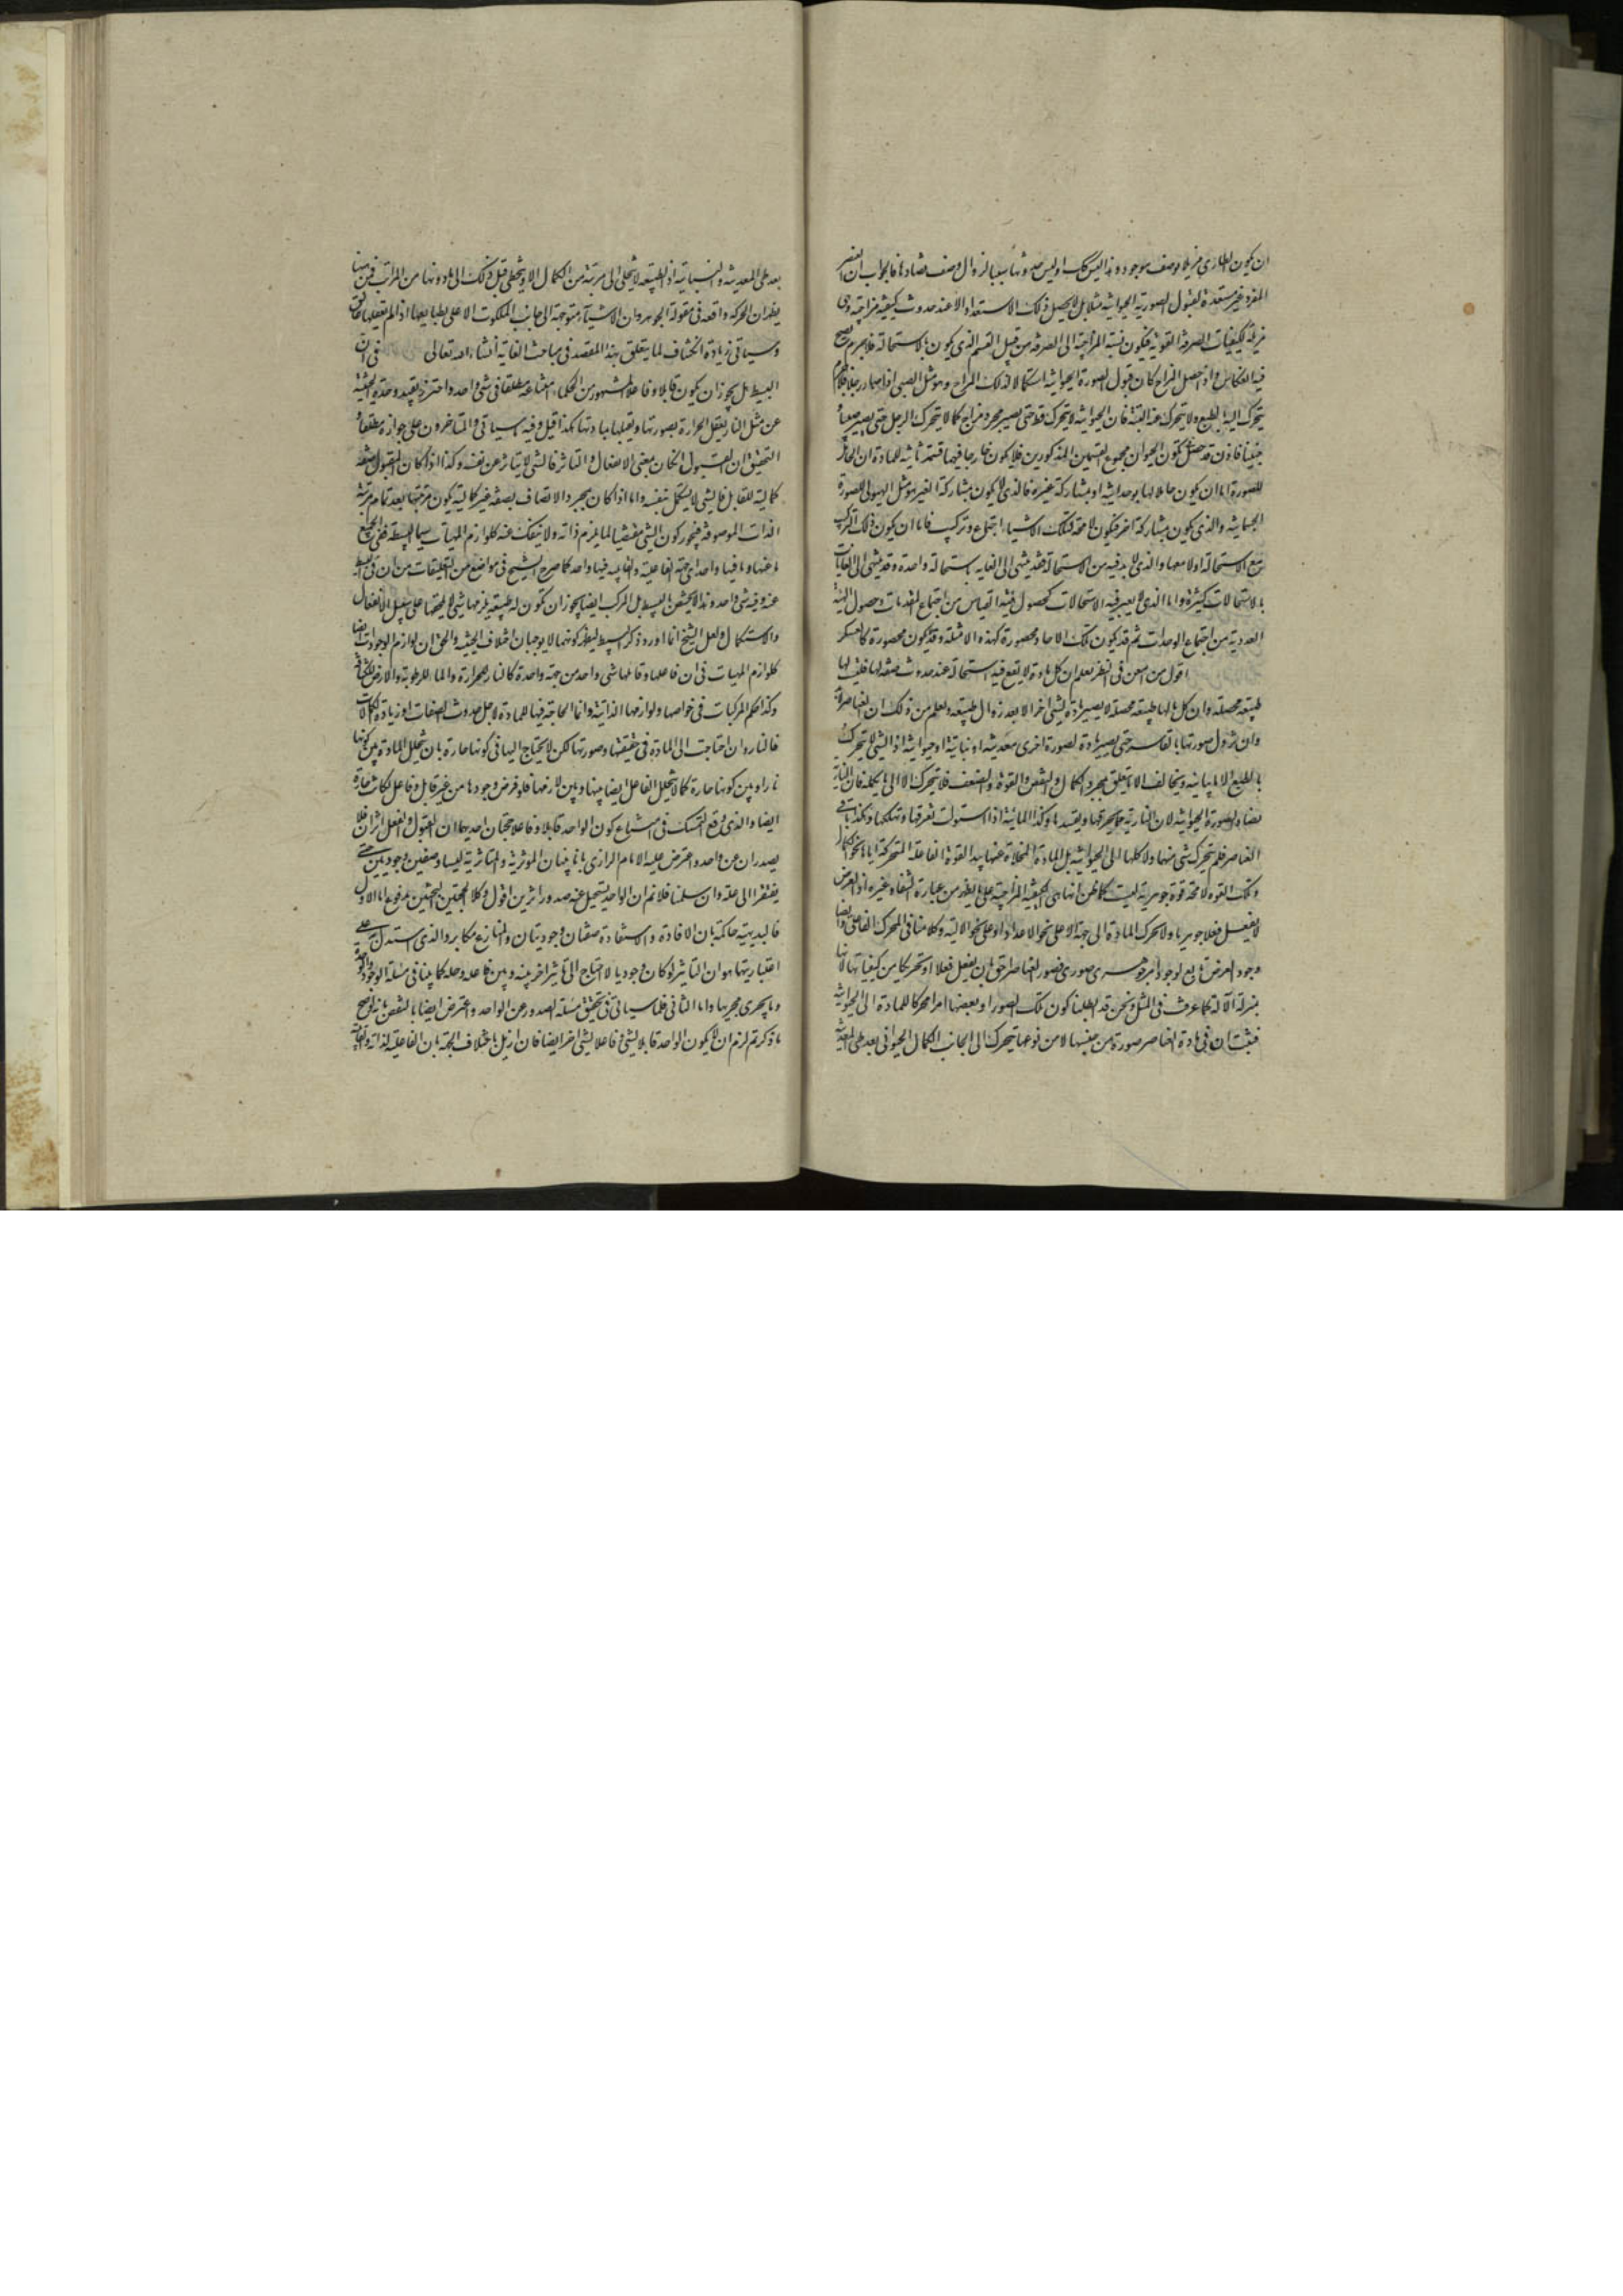 ان يكون الطارى مزيلا لوصف موجود وهذا ليس كك اوليس حدوثها سببا لزوال وصف مضاد لها فالجواب ان العنصر
المفرد غير مستعدة لقبول الصورة الحيوانية مثلا بل لا يحصل ذلك الاستعداد الا عند حدوث كيفية مزاجية وهى
مزيلة للكيفيات الصرفة القوية فيكون نسبة المزاجية الى الصرفة من قبيل القسم الذى يكون بالاستحالة فلا جرم يصح
فيه انعكاس واذا حصل المزاج كان قبول الصورة الحيوانية استكمالا لذلك المزاج وهو مثل الصبى اذا صار رجلا فلا جرم
يتحرك اليه بالطبع ولا يتحرك عنه البتة فان الحيوانية لا يتحرك قط حتى يصير مجرد مزاج كما لا يتحرك الرجل حتى يصير صبيا
جنينا فاذن قد حصل تكون الحيوان مجموع القسمين المذكورين فلا يكون خارجا فيهما قسمة ثانية للمادة ان الحامل
للصورة اما ان يكون حاملا لها بوحدانيته او بمشاركة غيره فالذى لا يكون بمشاركة الغير هو مثل الهيولى للصورة
الجسمانية والذى يكون بمشاركة اخر فيكون لا محة لتلك الاشياء اجتماع وتركيب فاما ان يكون ذلك التركيب
مع الاستحالة او لا معها والذى لا بد فيه من الاستحالة فقد ينتهى الى الغاية باستحالة واحدة وقد ينتهى الى الغايات
باستحالات كثيرة واما الذى لا يعتبر فيه الاستحالات كحصول هيئة القياس من اجتماع المقدمات وحصول الهيئة
العددية من اجتماع الوحدات ثم قد يكون تلك الاحاد محصورة كهذه الامثلة وقد يكون غير محصورة كالعسكر
اقول من امعن فى النظر يعلم ان كل مادة لا يقع فيه استحالة عند حدوث صفة لها فليس لها
طبيعة محصلة وان كل ما لها طبيعة محصلة لا يصير مادة لشئ اخر الا بعد زوال طبيعته ويعلم من ذلك ان العناصر لا بد
وان تزول صورتها بالقاسر حتى يصير مادة لصورة اخرى معدنية او نباتية او حيوانية اذ الشئ لا يتحرك
بالطبع الا ما يباينه ويخالفه الا ما يتعلق بمجرد الكمال والنقص والقوة والضعف فلا يتحرك الا الى ما يكمله فان النارية
يضاد الصورة الحيوانية لان النارية مما يحرقها ويفسدها وكذا المائية اذا استولت تغرقها وتهلكها وهكذا باقى
العناصر فلم يتحرك شئ منها ولا كلها الى الحيوانية بل المادة المخلاة عنها بيد القوة الفاعلة المتحركة اياها نحو الكمال
وتلك القوة لا محة قوة جوهرية ليست كما ظن انها هى الكيفية المزاجية على ما يظهر من عبارة الشفاء وغيره اذ العرض
لا يفعل فعلا جوهريا ولا يحرك المادة الى جهة الا على نحو الاعداد او على نحو الالية وكلامنا فى المحرك الفاعلى وايضا
وجود العرض تابع لوجود امر جوهرى صورى فصور العناصر احق بان يفعل فعلا او تحريكا من كيفياتها لانها
بمنزلة الآلة كما عرفت فى المثل ونحن قد ابطلنا كون تلك الصور او بعضها امرا محركا للمادة الى الحيوانية
فثبت ان فى مادة العناصر صورة من جنسها لا من نوعها يتحرك الى الجانب الكمال الحيوانى بعد طى المعدنية
بعد طى المعدنية والنباتية اذ الطبيعة لا يتخطى الى مرتبة من الكمال الا ويتخطى قبل ذلك الى ما دونها من المراتب فمن هنا
يظهر ان الحركة واقعة فى مقولة الجوهر وان الاشياء متوجهة الى جانب الملكوت الاعلى بطبايعها اذا لم يعقها عائق
وسياتى زيادة انكشاف لما يتعلق بهذا المقصد فى مباحث الغاية انشاء الله تعالى فى ان
البسيط هل يجوز ان يكون قابلا وفاعلا المشهور من الحكماء امتناعه مطلقا فى شئ واحد واحترز بقيد وحدة الحيثية
عن مثل النار يفعل الحرارة بصورتها ويقبلها بمادتها هكذا قيل وفيه ما سياتى والمتاخرون على جوازه مطلقا و
التحقيق ان القبول ان كان بمعنى الانفعال والتاثر فالشئ لا يتاثر عن نفسه وكذا اذا كان المقبول صفة
كمالية للقابل فالشئ لا يستكمل بنفسه واما اذا كان بمجرد الاتصاف بصفة غير كمالية يكون مرتبتها بعد تمام مرتبة
الذات الموصوفة فيجوز كون الشئ مقتضيا لما يلزم ذاته ولا ينفك عنه كلوازم المهيات سيما البسيطة ففى الجميع
ما عنها وما فيها واحد اى جهة الفاعلية والقابلية فيها واحد كما صرح الشيخ فى مواضع من التعليقات من ان فى البسيط
عنه وفيه شئ واحد وهذا لا يختص بالبسيط بل المركب ايضا يجوز ان تكون له طبيعة يلزمها شئ لا يلحقها على سبيل الانفعال
والاستكمال ولعل الشيخ انما اورد ذكر البسيط ليظهر كونهما لا يوجبان اختلاف الحيثية والحق ان لوازم الوجودات ايضا
كلوازم المهيات فى ان فاعلها وقابلها شئ واحد من جهة واحدة كالنار للحرارة والماء للرطوبة والارض للكثافة
وكذا حكم المركبات فى خواصها ولوازمها الذاتية وانما الحاجة فيها للمادة لاجل حدوث الصفات او زيادة الكمالات
فالنار وان احتاجت الى المادة فى حقيقتها وصورتها لكن لا يحتاج اليها فى كونها حارة بان يتخلل المادة بين كونها
نارا وبين كونها حارة كما لا يتخلل الفاعل ايضا بينها وبين لازمها فلو فرض وجودها من غير قابل وفاعل لكانت حارة
ايضا والذى وقع التمسك فى امتناع كون الواحد قابلا وفاعلا حجتان احديهما ان القبول والفعل اثران فلا
يصدران عن واحد واعترض عليه الامام الرازى بانا بينا ان الموثرية والمتاثرية ليسا وصفين وجوديين حتى
يفتقرا الى علة وان سلمنا فلا نم ان الواحد يستحيل عنه صدور اثرين اقول وكلا المنعين للحجتين مدفوع اما الاول
فالبديهية حاكمة بان الافادة والاستفادة صفتان وجوديتان والمنازع مكابر والذى يستدل به على
اعتباريتها هو ان التاثير لو كان وجوديا لاحتاج الى تاثير اخر بينه وبين فاعله وحله كما بينا فى مسئلة الوجود والوحدة
وما يجرى مجريها واما الثانى فلما سياتى فى تحقيق مسئلة الصدور عن الواحد واعترض ايضا بالنقض بانه لو صح
ما ذكرتم لزم ان لا يكون الواحد قابلا لشئ وفاعلا لشئ اخر ايضا فان ازيل باختلاف الجهة بان الفاعلية لذاته والقابلية